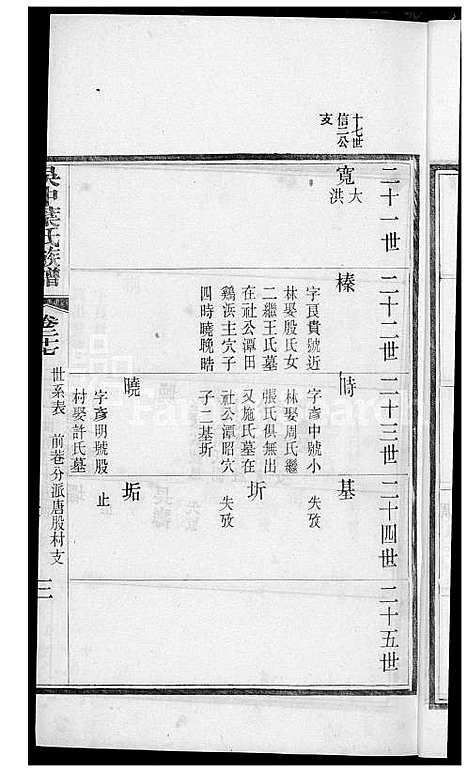 十七世
信二公
支
二十一世
二十二世
二十三世
二十四世
二十五世
大
寬
洪
榛
字良貴號近
林娶殷氏女
二繼王氏墓
在社公潭田
鷄浜主穴子
四時曉晚晧
時
字彥中號小
林娶周氏繼
張氏俱無出
又施氏墓在
社公潭昭穴
子二基圻
基
失攷
圻
失攷
曉
字彥明號殷
村娶許氏墓
垢
止
吳中葉氏族譜
卷二十七
世系表
前巷分派唐股村支
三